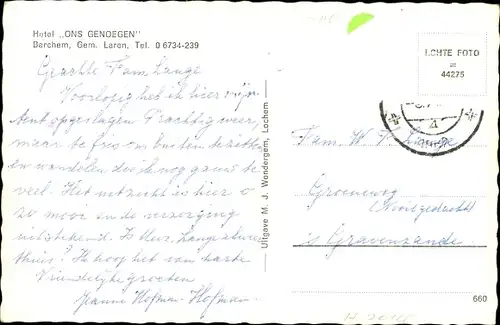 Hotel „ONS GENOEGEN"
Barchem, Gem. Laren, Tel. 0 6734-239
Geachte Fam. Lange
Voorlopig heb ik hier mijn
tent opgeslagen Prachtig weer
maar te fris om buiten te zitten
en wandelen doe ik nog gauw te
veel. Het uitzicht is hier o
zo mooi en de verzorging
uitstekend. Is Mevr. Lange al weer
thuis? Ik hoop het van harte
Vriendelijke groeten
Jeanne Hofman-Hofman
Uitgave M. J. Wondergem, Lochem
ECHTE FOTO
44275
Fam. W. Lange
Groeneweg
(Nooitgedacht)
's Gravenzande
660